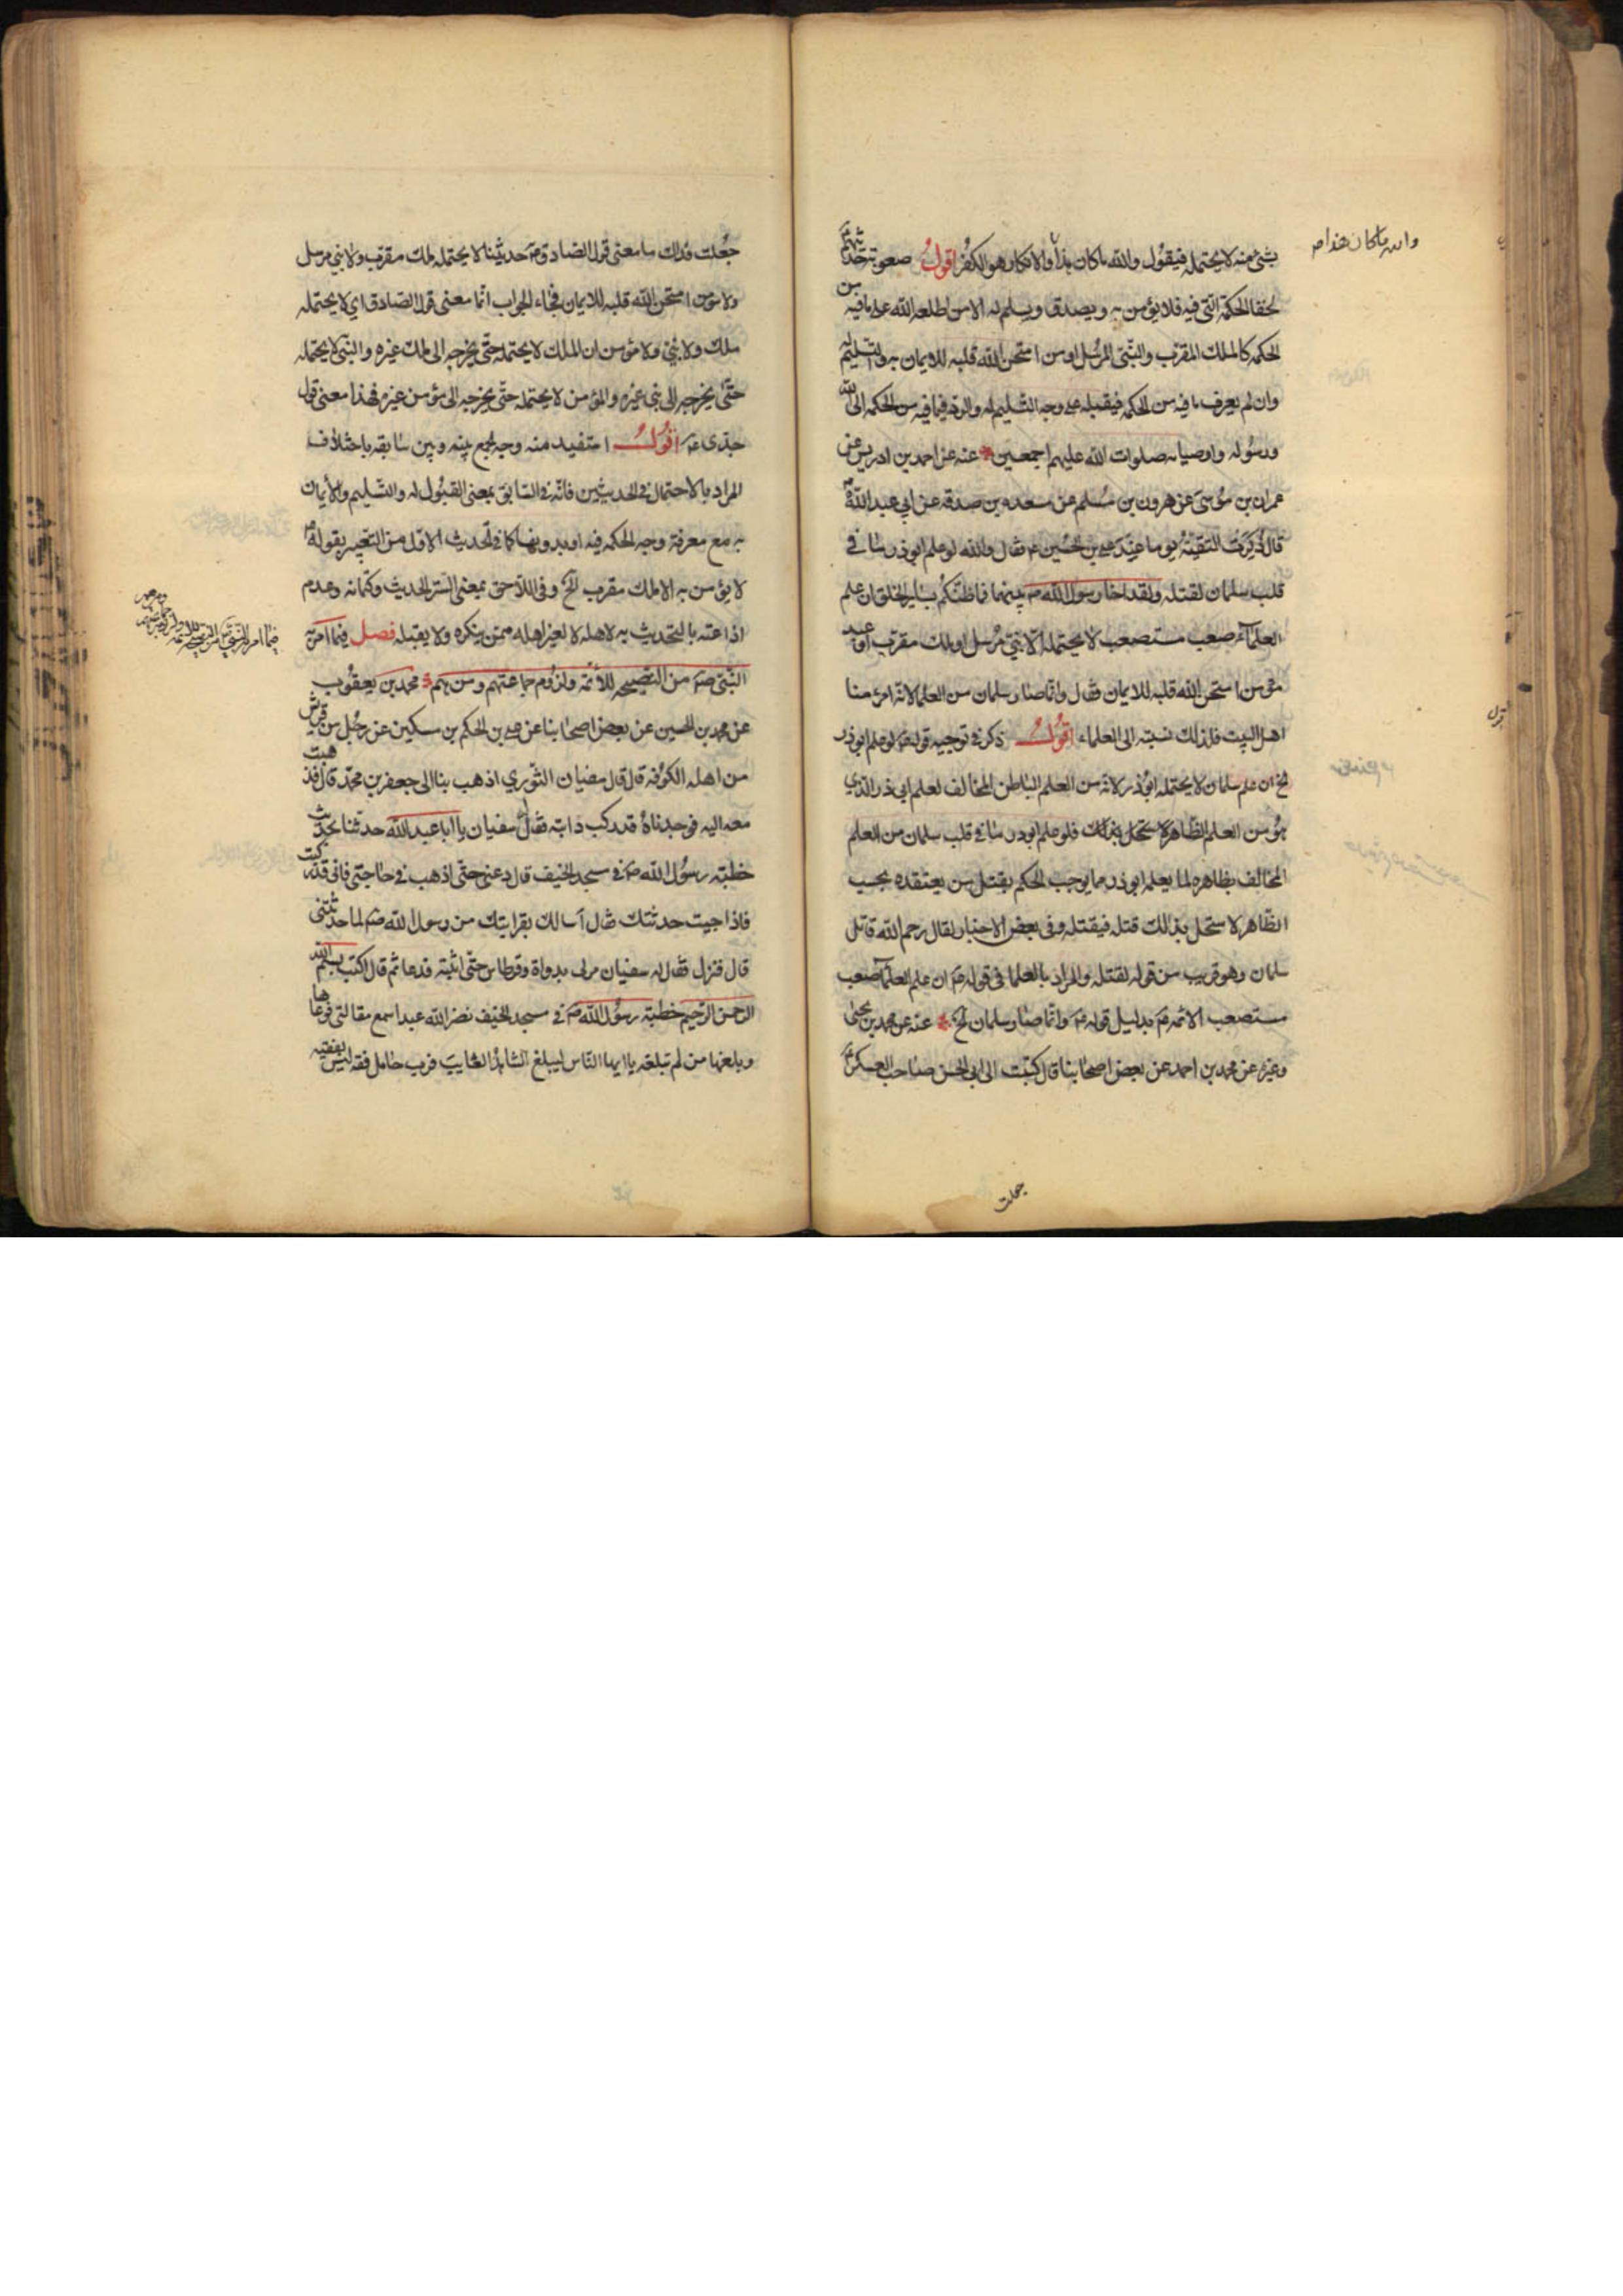 بشئ منه لا يحتمله فيقول والله ما كان هذا والانكار هو الكفر اقول صعوبة حديثهم
لخفا الحكمة التي فيه فلا يؤمن به ويصدق ويسلم له الا من اطلعه الله على ما فيه من
الحكمه كالملك المقرب والنبي المرسل او من امتحن الله قلبه للايمان به والتسليم له
وان لم يعرف ما فيه من الحكمه فيقبله على وجه التسليم له والرد فيما فيه من الحكمه الى الله
ورسوله واوصيائه صلوات الله عليهم اجمعين عنه عن احمد بن ادريس عن
عمران بن موسى عن هرون بن مسلم عن مسعده بن صدقه عن ابي عبد الله ع
قال ذكرت التقية يوما عند علي بن الحسين ع فقال والله لو علم ابو ذر ما في
قلب سلمان لقتله ولقد اخا رسول الله ص بينهما فما ظنكم بساير الخلق ان علم
العلماء صعب مستصعب لا يحتمله الا نبي مرسل او ملك مقرب او عبد
مؤمن امتحن الله قلبه للايمان فقال وانما صار سلمان من العلما لانه امرء منا
اهل البيت فلذلك نسبته الى العلماء اقول ذكر في توجيه قوله ع لو علم ابو ذر
الخ ان علم سلمان لا يحتمله ابو ذر لانه من العلم الباطن المخالف لعلم ابي ذر الذي
هو من العلم الظاهر لا ستحل بذلك فلو علم ابو ذر ما في قلب سلمان من العلم
المخالف بظاهره لما يعلمه ابو ذر مما يوجب الحكم بقتل من يعتقده بحسب
الظاهر لاستحل بذلك قتله فيقتله وفي بعض الاخبار لقال رحم الله قاتل
سلمان وهو قريب من قوله لقتله والمراد بالعلما في قوله ع ان علم العلماء صعب
مستصعب الائمه ع بدليل قوله ع وانما صار سلمان الخ عنه عن محمد بن يحيى
وغيره عن محمد بن احمد عن بعض اصحابنا قال كتبت الى ابي الحسن صاحب العسكر ع
والله ما كان هذا
جعلت
جعلت فداك ما معنى قول الصادق ع حديثنا لا يحتمله ملك مقرب ولا نبي مرسل
ولا مؤمن امتحن الله قلبه للايمان فجاء الجواب انما معنى قول الصادق اي لا يحتمله
ملك ولا نبي ولا مؤمن ان الملك لا يحتمله حتى يخرجه الى ملك غيره والنبي لا يحتمله
حتى يخرجه الى نبي غيره والمؤمن لا يحتمله حتى يخرجه الى مؤمن غيره فهذا معنى قول
جدي ع اقول استفيد منه وجه لجمع بينه وبين سابقه باختلاف
المراد بالاحتمال في الحديثين فانه في السابق بمعنى القبول له والتسليم والايمان
به مع معرفة وجه الحكمه فيه او بدونها كما في الحديث الاول من التعبير بقوله ع
لا يؤمن به الا ملك مقرب الخ وفي اللاحق بمعنى الستر الحديث وكتمانه وعدم
اذاعته بالتحديث به لاهله لا لغير اهله ممن ينكره ولا يقبله فصل فيما امر به
النبي ص من النصيحه للائمه ولزوم جماعتهم ومن هم محمد بن يعقوب
عن محمد بن الحسين عن بعض اصحابنا عن علي بن الحكم بن سكين عن رجل من قريش
من اهل الكوفه قال قال سفيان الثوري اذهب بنا الى جعفر بن محمد قال فذهبت
معه اليه فوجدناه قد ركب دابته فقال سفيان يا ابا عبد الله حدثنا بحديث
خطبته رسول الله ص في مسجد الخيف قال دعني حتى اذهب في حاجتي فاني قد ركبت
فاذا جيت حدثتك فقال اسالك بقرابتك من رسول الله ص لما حدثتني
قال فنزل فقال له سفيان مر لي بدواة وقرطاس حتى اثبته فدعا ثم قال اكتب بسم الله
الرحمن الرحيم خطبته رسول الله ص في مسجد الخيف نضر الله عبدا سمع مقالتي فوعاها
وبلغها من لم تبلغه يا ايها الناس ليبلغ الشاهد الغايب فرب حامل فقه ليس بفقيه